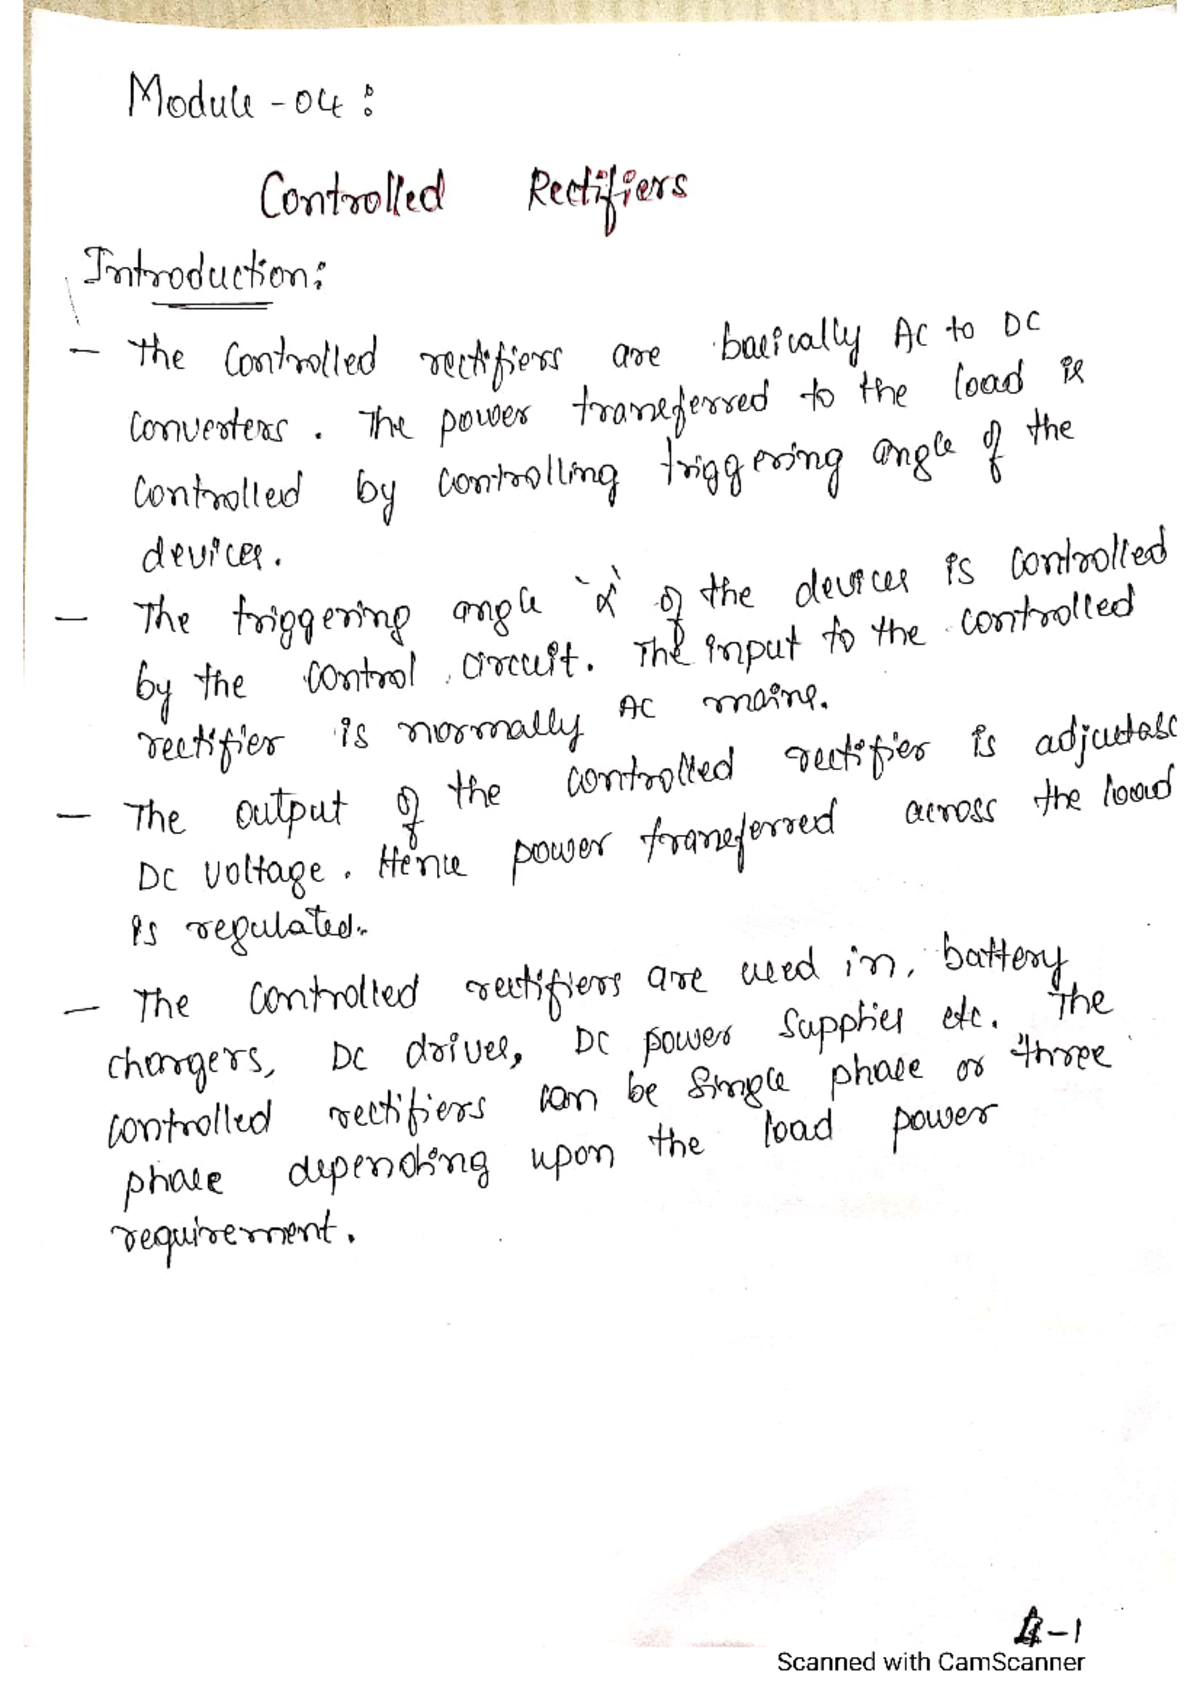 Module - 04 :
Controlled Rectifiers
Introduction:
- The controlled rectifiers are basically AC to DC
converters. The power transferred to the load is
controlled by controlling triggering angle of the
devices.
- The triggering angle `α` of the devices is controlled
by the control circuit. The input to the controlled
rectifier is normally AC mains.
- The output of the controlled rectifier is adjustabl
DC voltage. Hence power transferred across the load
is regulated.
- The controlled rectifiers are used in, battery
chargers, DC drives, DC power supplies etc. The
controlled rectifiers can be single phase or three
phase depending upon the load power
requirement.
4-1
Scanned with CamScanner